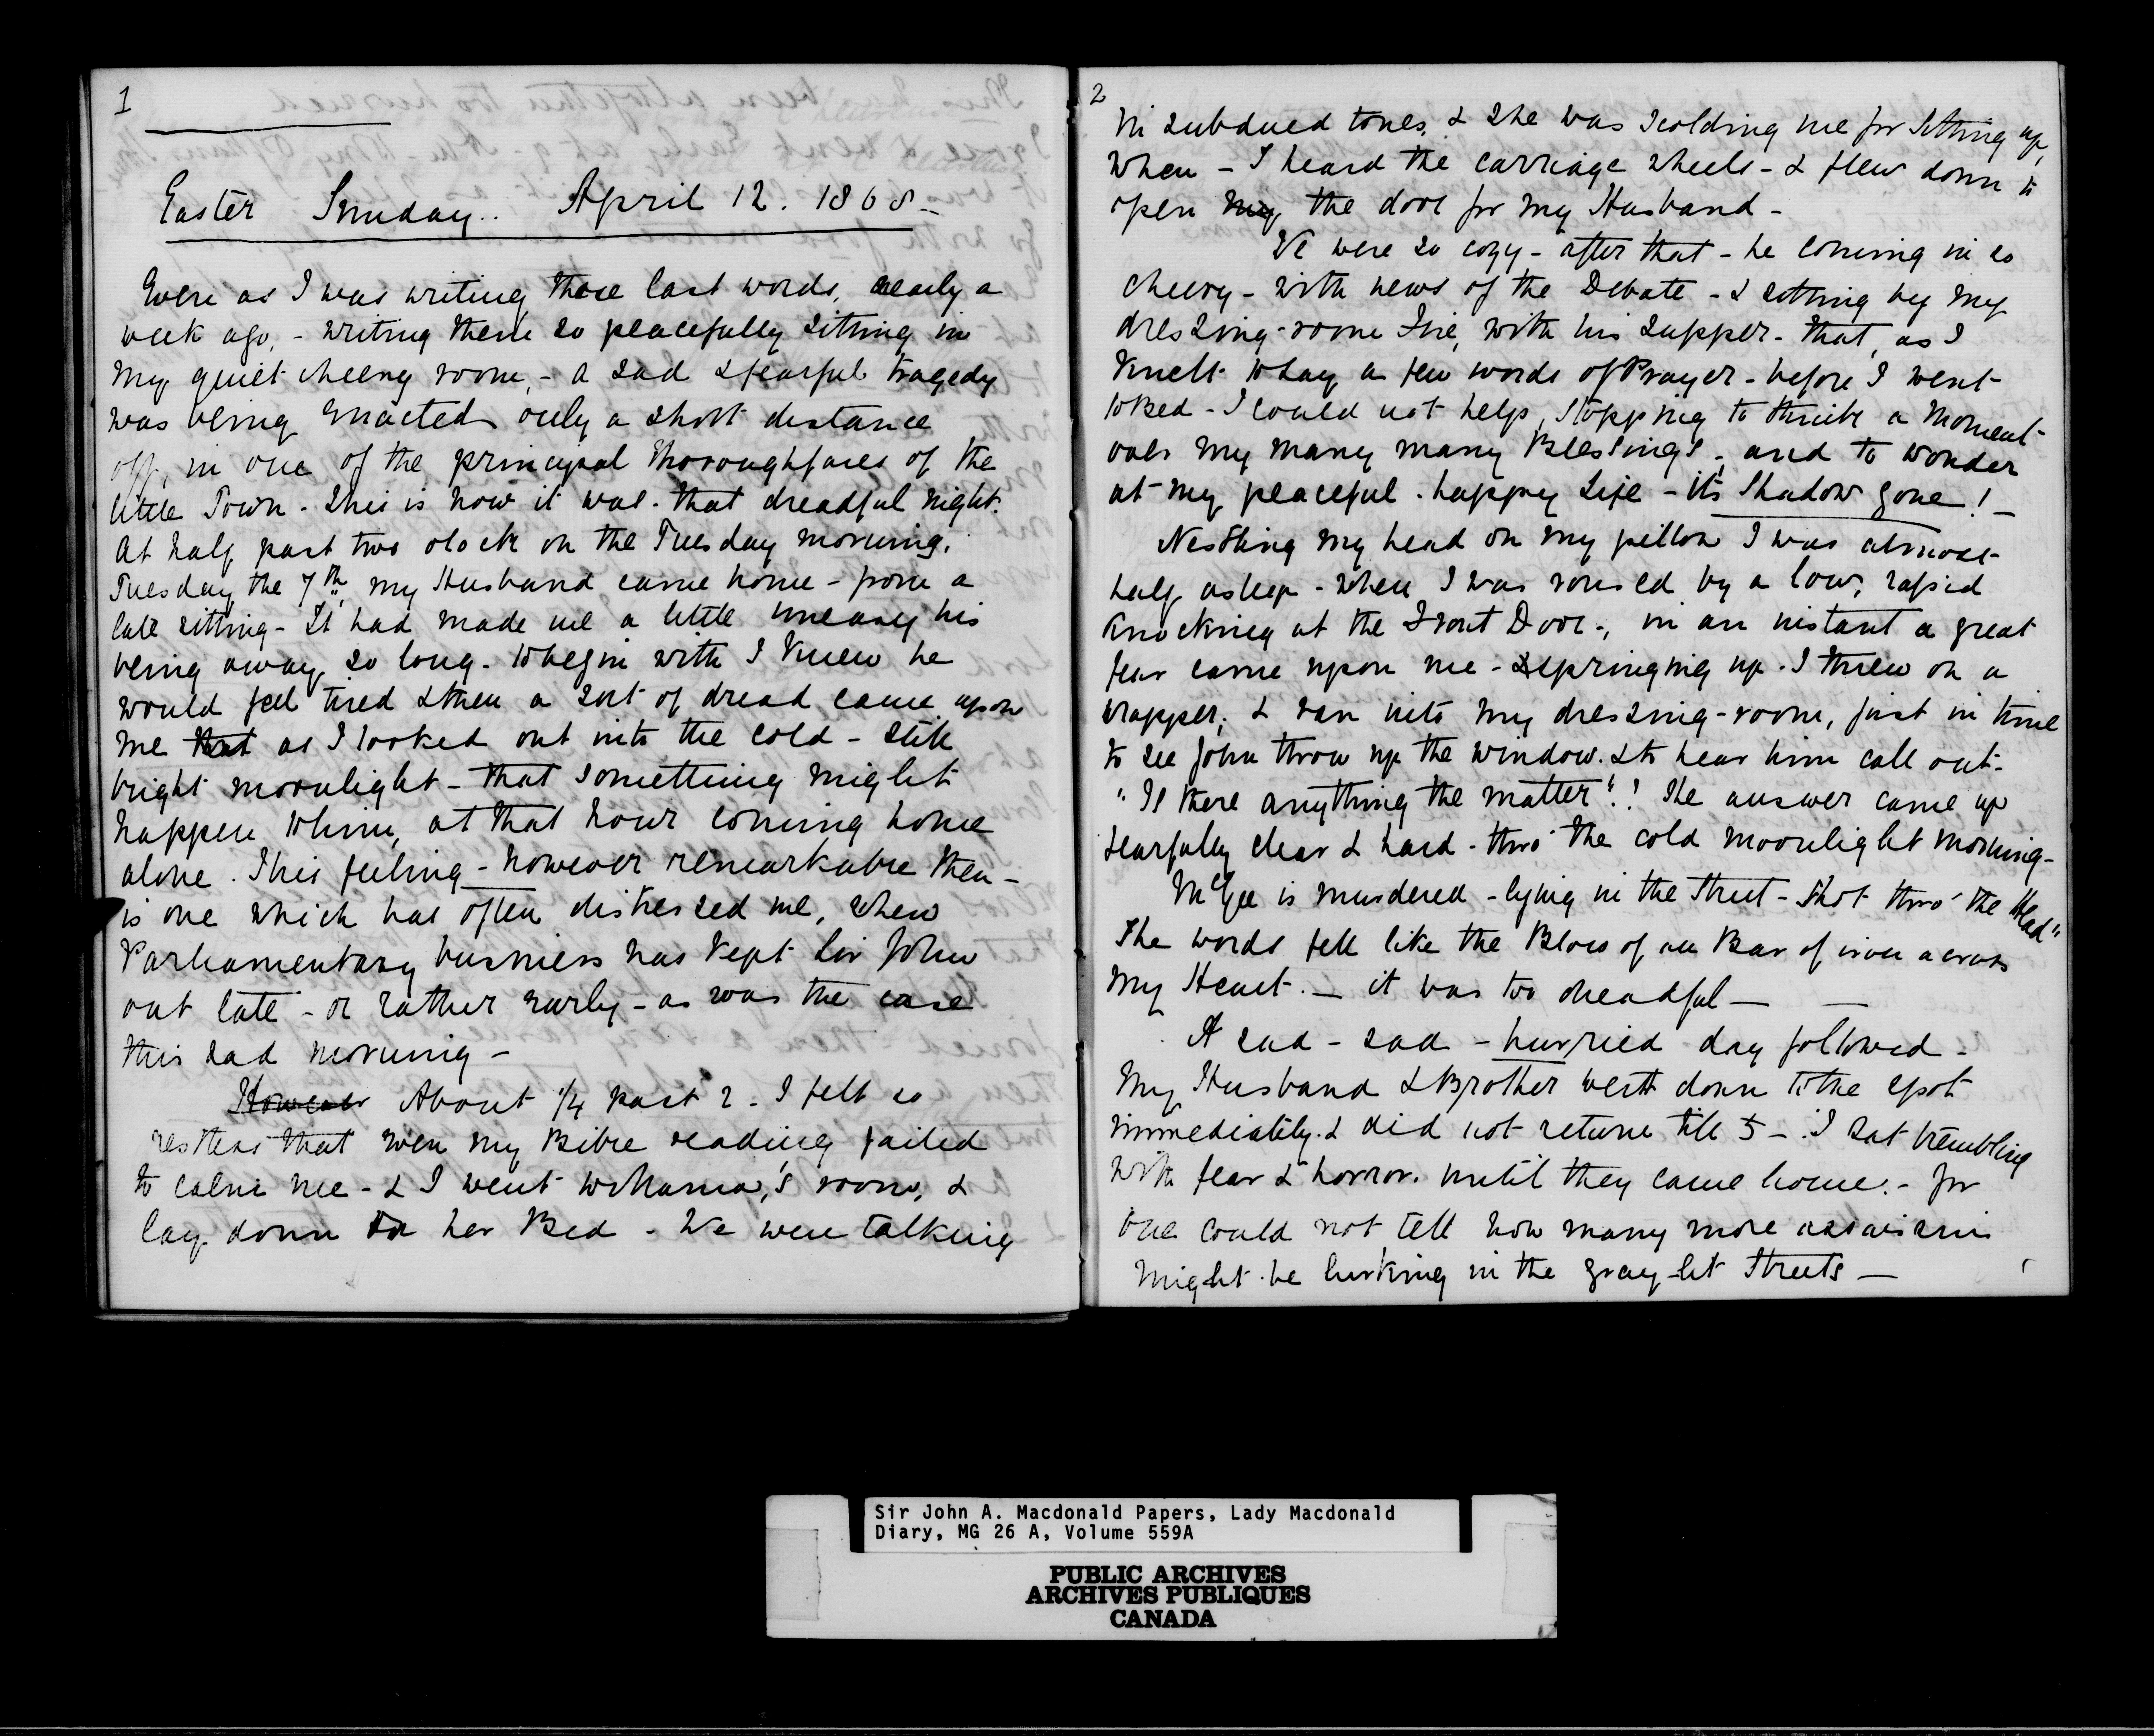 1
Easter Sunday.. April 12. 1868 -
Even as I was writing these last words, nearly a
week ago, - writing them so peacefully sitting in
my quiet cheery room, - a sad & fearful tragedy
was being enacted only a short distance
off, in one of the principal thoroughfares of the
little Town. This is how it was. that dreadful night.
At half past two oclock on the Tuesday morning.
Tuesday the 7th, my Husband came home - from a
late sitting - It had made me a little uneasy his
being away so long. To begin with I knew he
would feel tired & then a sort of dread came upon
me that as I looked out into the cold - still
bright moonlight - that something might
happen to him, at that hour coming home
alone. This feeling - however remarkable then -
is one which has often distressed me, when
Parliamentary business has kept Sir John
out late - or rather early - as was the case
this sad morning -
However About 1/4 past 2 - I felt so
restless that even my Bible reading failed
to calm me - & I went to Mama's room, &
lay down on her Bed - We were talking
2
in subdued tones, & she was scolding me for sitting up,
when - I heard the carriage wheels - & flew down to
open my the door for my Husband -
We were so cozy - after that - he coming in so
cheery - with news of the Debate - & sitting by my
dressing-room Fire, with his supper - that, as I
knelt to say a few words of Prayer - before I went
to bed - I could not help, stopping to think a moment
over my many many Blessings, and to wonder
at my peaceful happy Life - its Shadow gone! -
Nestling my head on my pillow I was almost
half asleep - when I was roused by a low, rapid
knocking at the Front Door -, in an instant a great
fear came upon me - springing up - I threw on a
wrapper, & ran into my dressing-room, just in time
to see John throw up the window. & to hear him call out -
"Is there anything the matter"? The answer came up
fearfully clear & hard - thro' the cold moonlight morning -
McGee is murdered - lying in the Street - Shot thro' the Head"
The words fell like the Blow of an Bar of iron across
my Heart. - it was too dreadful -  -
A sad - sad - hurried day followed -
My Husband & Brother went down to the spot
immediately. & did not return till 5 - . I sat trembling
with fear & horror. until they came home. - for
one could not tell how many more assassins
might be lurking in the gray-lit Streets -
Sir John A. Macdonald Papers, Lady Macdonald
Diary, MG 26 A, Volume 559A
PUBLIC ARCHIVES
ARCHIVES PUBLIQUES
CANADA